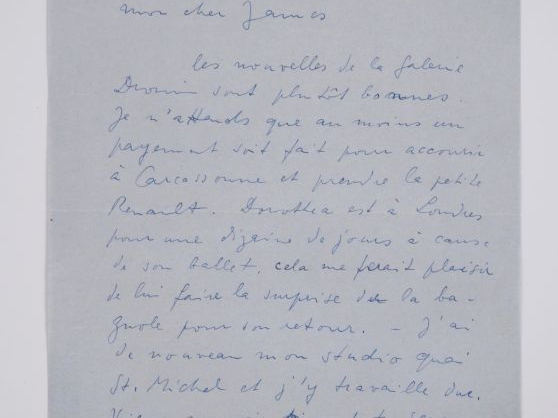 mon cher James
les nouvelles de la Galerie
Drouin sont plutôt bonnes.
Je n'attends que au moins un
payement soit fait pour accourir
à Carcassonne et prendre la petite
Renault. Dorothea est à Londres
pour une dizaine de jours à cause
de son ballet, cela me ferait plaisir
de lui faire la surprise de la ba-
gnole pour son retour. – J'ai
de nouveau mon studio quai
St. Michel et j'y travaille dur.